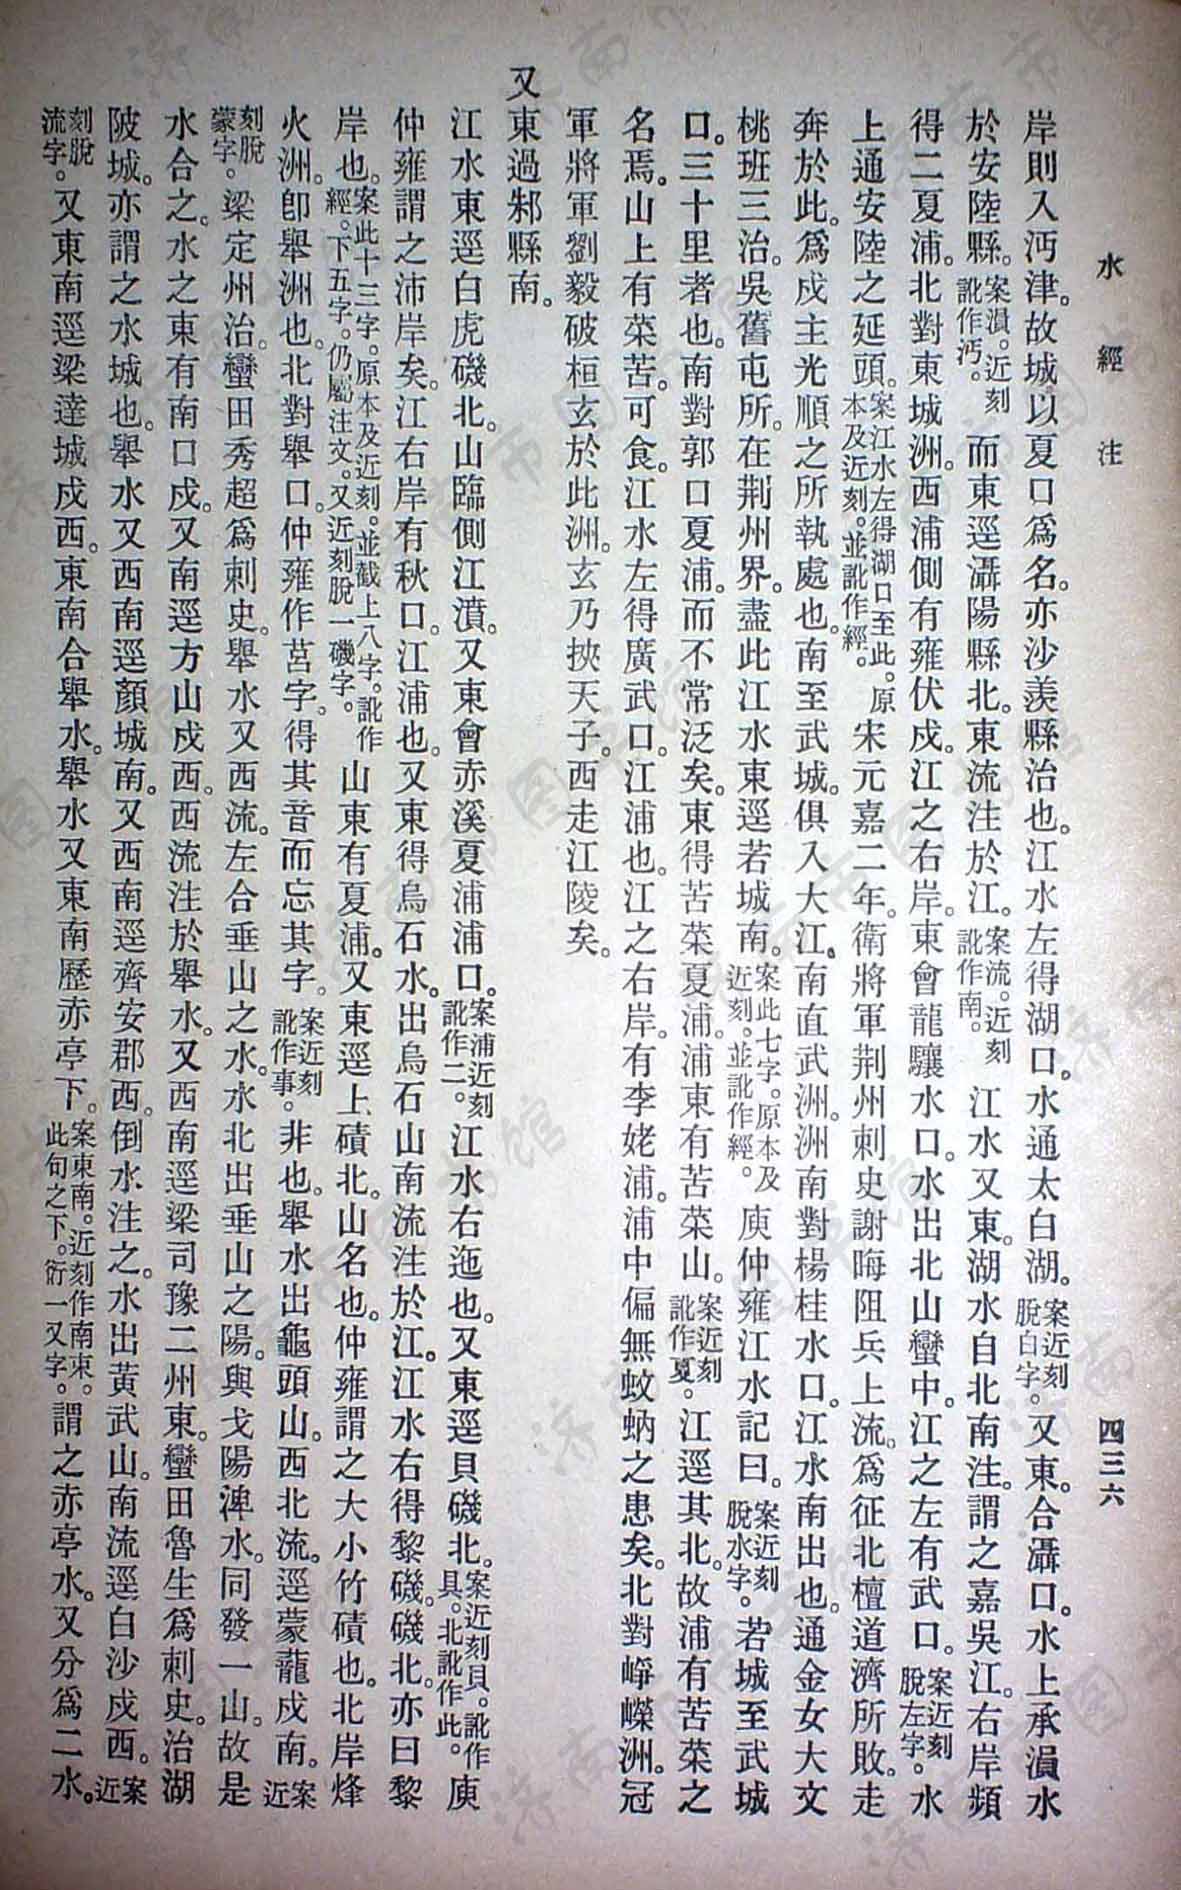 水經注
四三六
岸則入沔津。故城以夏口爲名。亦沙羨縣治也。江水左得湖口。水通太白湖。案近刻脫白字。又東。合灄口。水上承溳水
於安陸縣。案溳。近刻訛作沔。而東逕灄陽縣北。東流注於江。案流。近刻訛作南。江水又東。湖水自北南注。謂之嘉吳江。右岸頻
得二夏浦。北對東城洲。西浦側有雍伏戍。江之右岸。東會龍驤水口。水出北山蠻中。江之左有武口。案近刻脫左字。水
上通安陸之延頭。案江水左得湖口至此。原本及近刻。並訛作經。宋元嘉二年。衛將軍荆州刺史謝晦阻兵上流。爲征北檀道濟所敗。走
奔於此。爲戍主光順之所執處也。南至武城。俱入大江。南直武洲。洲南對楊桂水口。江水南出也。通金女大文
桃班三治。吳舊屯所。在荆州界。盡此江水東逕若城南。案此七字。原本及近刻。並訛作經。庾仲雍江水記曰。案近刻脫水字。若城至武城
口。三十里者也。南對郭口夏浦。而不常泛矣。東得苦菜夏浦。浦東有苦菜山。案近刻訛作夏。江逕其北。故浦有苦菜之
名焉。山上有菜苦。可食。江水左得廣武口。江浦也。江之右岸。有李姥浦。浦中偏無蚊蚋之患矣。北對崢嶸洲。冠
軍將軍劉毅破桓玄於此洲。玄乃挾天子。西走江陵矣。
又東過邾縣南。
江水東逕白虎磯北。山臨側江濆。又東會赤溪夏浦浦口。案浦近刻訛作二。江水右迤也。又東逕貝磯北。案近刻貝。訛作具。北訛作此。庾
仲雍謂之沛岸矣。江右岸有秋口。江浦也。又東得烏石水。出烏石山南流注於江。江水右得黎磯。磯北。亦曰黎
岸也。案此十三字。原本及近刻。並截上八字。訛作經。下五字。仍屬注文。又近刻脫一磯字。山東有夏浦。又東逕上磧北。山名也。仲雍謂之大小竹磧也。北岸烽
火洲。卽舉洲也。北對舉口。仲雍作莒字。得其音而忘其字。案近刻訛作事。非也。舉水出龜頭山。西北流。逕蒙蘢戍南。案近
刻脫蒙字。梁定州治。蠻田秀超爲刺史。舉水又西流。左合垂山之水。水北出垂山之陽。與弋陽渒水。同發一山。故是
水合之。水之東有南口戍。又南逕方山戍西。西流注於舉水。又西南逕梁司豫二州東。蠻田魯生爲刺史。治湖
陂城。亦謂之水城也。舉水又西南逕顏城南。又西南逕齊安郡西。倒水注之。水出黃武山。南流逕白沙戍西。案近
刻脫流字。又東南逕梁達城戍西。東南合舉水。舉水又東南歷赤亭下。案東南。近刻作南東。此句之下。衍一又字。謂之赤亭水。又分爲二水。